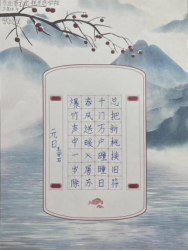 元日
爆竹声中一岁除
春风送暖入屠苏
千门万户曈曈日
总把新桃换旧符